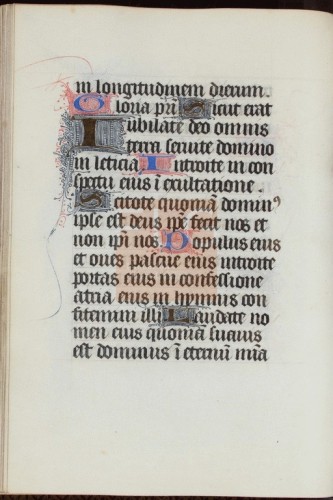 in longitudinem dierum.
Gloria pri̅ Sicut erat
Iubilate deo omnis
terra seruite domino
in leticia Introite in con
spectu eius i̅ exultatione.
Scitote quonia̅ dominꝰ
ipse est deus ip̅e fecit nos et
non ip̅i nos. Populus eius
et oues pascue eius introite
portas eius in confessione
atria eius in hymnis con
fitemini illi Laudate no
men eius quonia̅ suauis
est dominus i̅ eternu̅ mi̅a